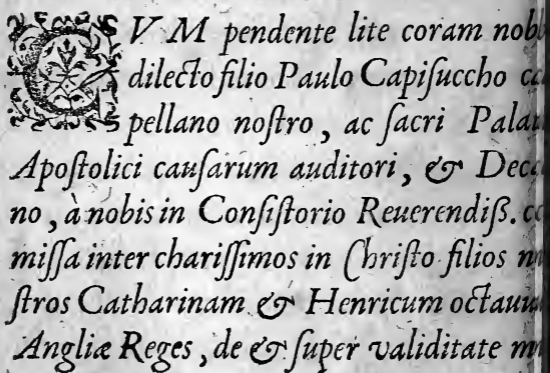 CVM pendente lite coram nob
dilecto filio Paulo Capisuccho ca
pellano nostro, ac sacri Palat
Apostolici causarum auditori, & Deca
no, à nobis in Consistorio Reuerendiß. co
missa inter charissimos in Christo filios n
stros Catharinam & Henricum octauu
Angliæ Reges, de & super validitate m